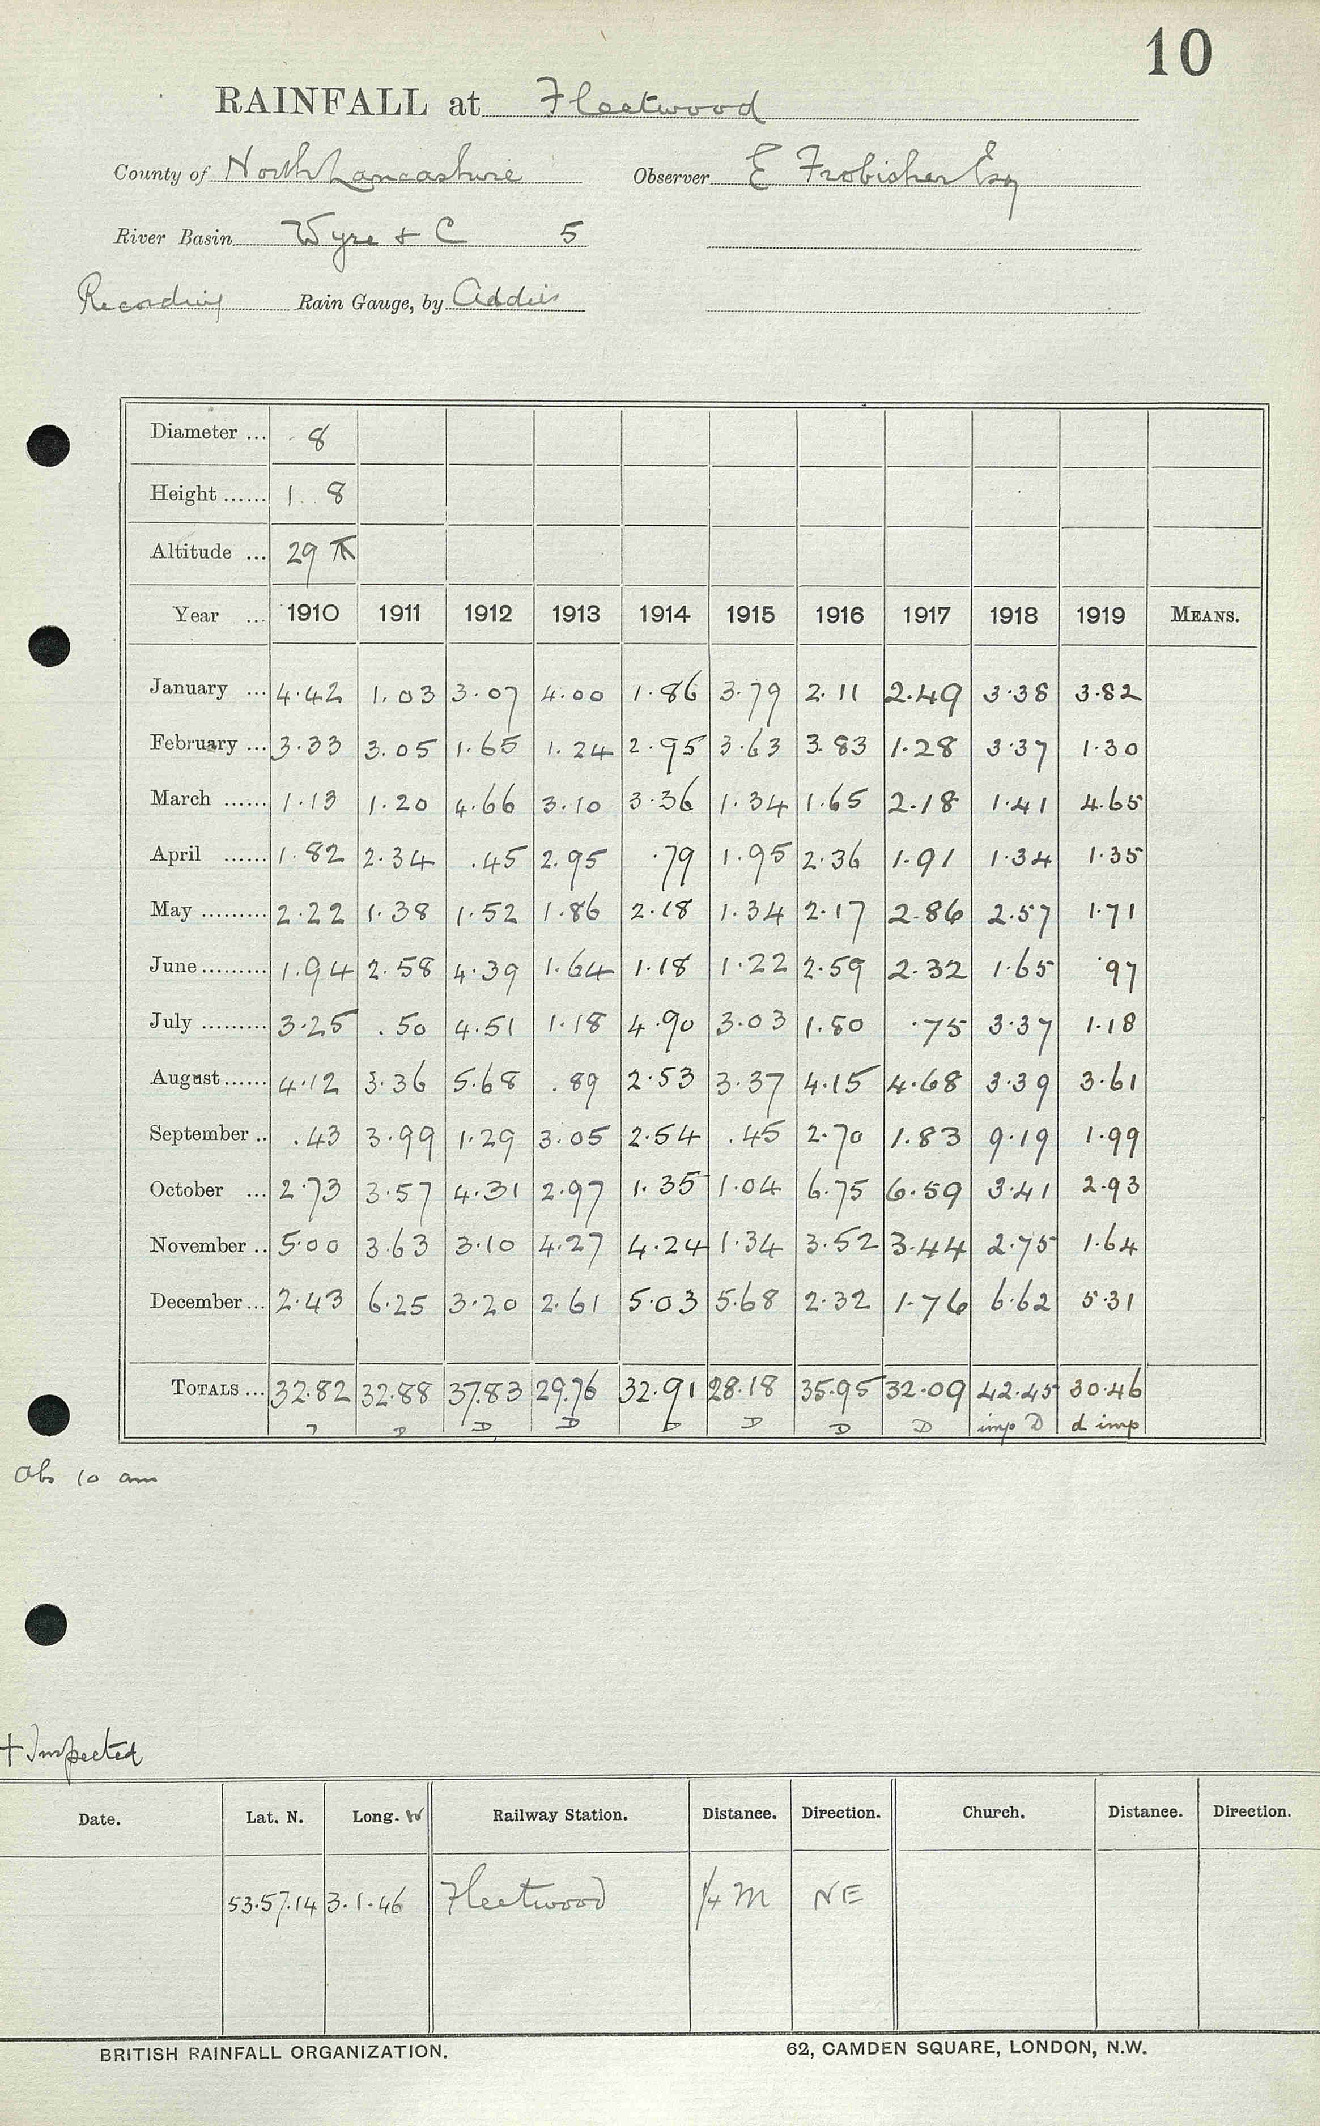 10
RAINFALL at Fleetwood
County of North Lancashire Observer E Frobisher Esq
River Basin Wyre & C 5
Recording Rain Gauge, by Addis
Diameter ... 8
Height ...... 1. 8
Altitude ... 29
Year ... 1910 1911 1912 1913 1914 1915 1916 1917 1918 1919 MEANS.
January ... 4.42 1.03 3.07 4.00 1.86 3.79 2.11 2.49 3.38 3.82
February ... 3.33 3.05 1.65 1.24 2.95 3.63 3.83 1.28 3.37 1.30
March ...... 1.13 1.20 4.66 3.10 3.36 1.34 1.65 2.18 1.41 4.65
April ...... 1.82 2.34 .45 2.95 .79 1.95 2.36 1.91 1.34 1.35
May ......... 2.22 1.38 1.52 1.86 2.18 1.34 2.17 2.86 2.57 1.71
June ......... 1.94 2.58 4.39 1.64 1.18 1.22 2.59 2.32 1.65 .97
July ......... 3.25 .50 4.51 1.18 4.90 3.03 1.80 .75 3.37 1.18
August ...... 4.12 3.36 5.68 .89 2.53 3.37 4.15 4.68 3.39 3.61
September .. .43 3.99 1.29 3.05 2.54 .45 2.70 1.83 9.19 1.99
October ... 2.73 3.57 4.31 2.97 1.35 1.04 6.75 6.59 3.41 2.93
November .. 5.00 3.63 3.10 4.27 4.24 1.34 3.52 3.44 2.75 1.64
December ... 2.43 6.25 3.20 2.61 5.03 5.68 2.32 1.76 6.62 5.31
TOTALS ... 32.82 32.88 37.83 29.76 32.91 28.18 35.95 32.09 42.45 30.46
D D D D D D D imp D d imp
Obs 10 am
+ Inspected
Date. Lat. N. Long. W Railway Station. Distance. Direction. Church. Distance. Direction.
53.57.14 3.1.46 Fleetwood 1/4 M NE
BRITISH RAINFALL ORGANIZATION. 62, CAMDEN SQUARE, LONDON, N.W.